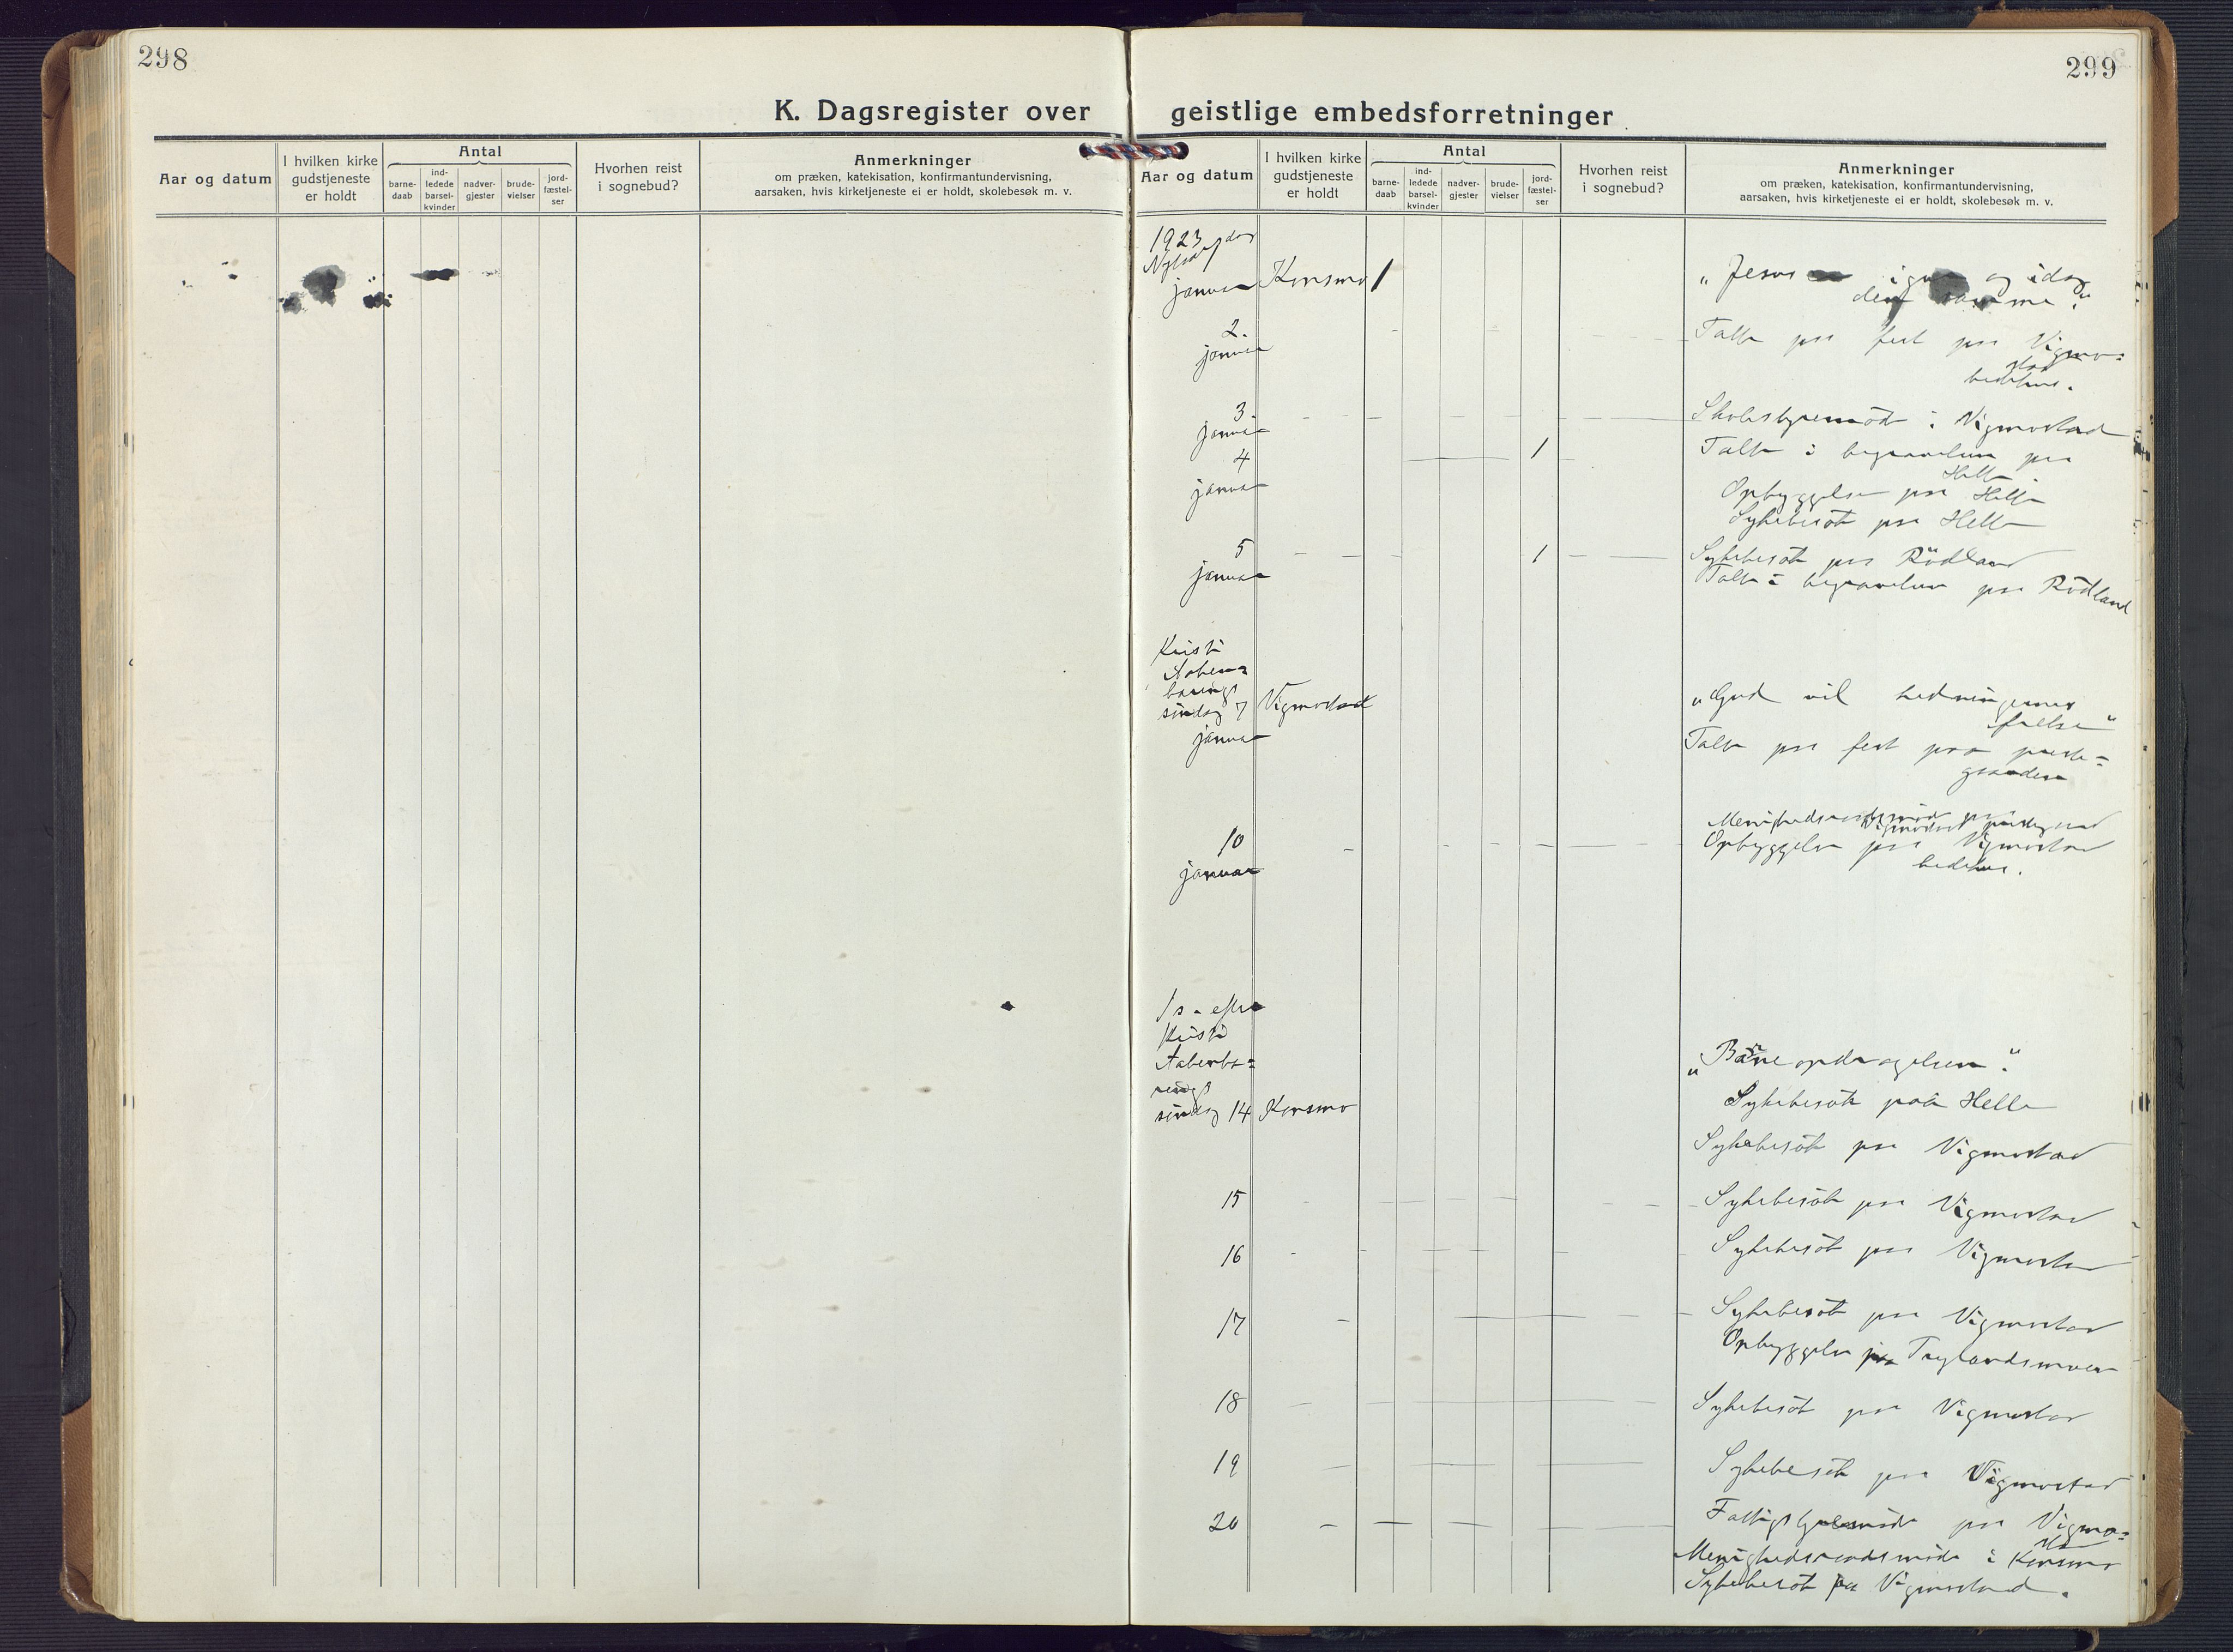 298
K. Dagsregister over
Aar og datum
I hvilken kirke
gudstjeneste
er holdt
Antal
barne-
daab
ind-
ledede
barsel-
kvinder
nadver-
gjester
brude-
vielser
jord-
fæstel-
ser
Hvorhen reist
i sognebud?
Anmerkninger
om præken, katekisation, konfirmantundervisning,
aarsaken, hvis kirketjeneste ei er holdt, skolebesøk m. v.
299
geistlige embedsforretninger
Aar og datum
I hvilken kirke
gudstjeneste
er holdt
Antal
barne-
daab
ind-
ledede
barsel-
kvinder
nadver-
gjester
brude-
vielser
jord-
fæstel-
ser
Hvorhen reist
i sognebud?
Anmerkninger
om præken, katekisation, konfirmantundervisning,
aarsaken, hvis kirketjeneste ei er holdt, skolebesøk m. v.
1923
Nytaarsdag
januar Konsmo 1 „Jesus igaar og idag
den samme“.
2.
januar Talte paa fest paa Vigmo=
stad
bedehus.
3.
januar Skolestyremöte i Vigmostad
4
januar 1 Talte i begravelse paa
Helle
Opbyggelse paa Helle
Sykebesök paa Helle
5
januar 1 Sykebesök paa Rödland
Talte i begravelse paa Rödland
Kristi
Aaben=
barings
söndag 7 Vigmostad „Gud vil hedningernes
frelse“
januar Talte paa fest paa preste=
gaarden
10
januar Menighedsraadsmöde paa
Vigmostad prestegaard
Opbyggelse paa Vigmostad
bedehus.
1 s. efter
Kristi
Aabenba=
rings
söndag 14 Konsmo „Barneopdragelsen“.
Sykebesök paa Helle
Sykebesök paa Vigmostad
15 Sykebesök paa Vigmostad
16 Sykebesök paa Vigmostad
17 Sykebesök paa Vigmostad
Opbyggelse paa Trylandsmoen
18 Sykebesök paa Vigmostad
19 Sykebesök paa Vigmostad
20 Fattigstyremöde paa Vigmo=
stad
Menighedsraadsmöde i Konsmo
Sykebesök paa Vigmostad.